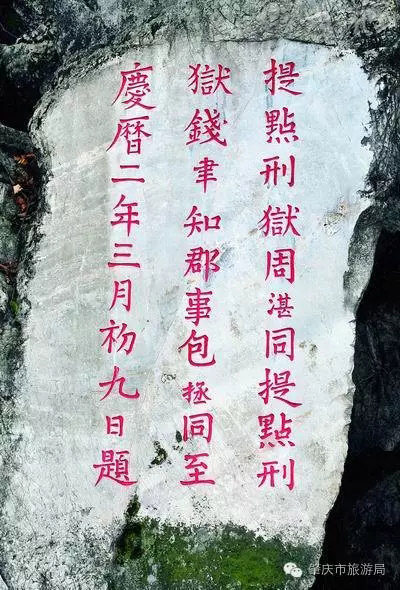 提點刑獄周湛同提點刑
獄錢聿知郡事包拯同至
慶曆二年三月初九日題
肇庆市旅游局